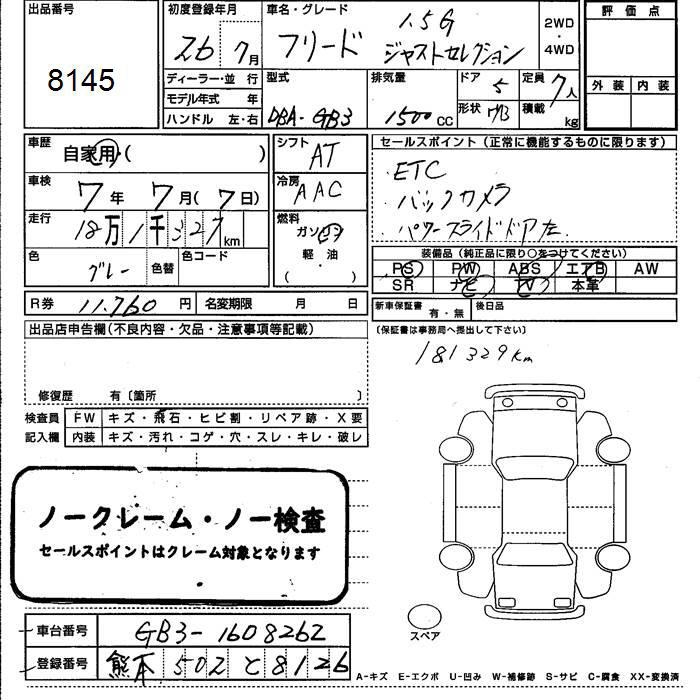 出品番号
8145
初度登録年月
26 7月
車名・グレード
フリード
1.5G
ジャストセレクション
2WD
・
4WD
評価点
外装 内装
ディーラー・並 行
モデル年式 年
ハンドル 左・右
型式
DBA-GB3
排気量
1500 CC
ドア
5
形状
定員
7人
積載 kg
車歴
自家用・( )
車検
7年 7月(7日)
走行
18万1千327km
色
グレー
色替
色コード
シフト
AT
冷房
AAC
燃料
ガソリン
軽・油
( )
セールスポイント(正常に機能するものに限ります)
ETC
バックカメラ
パワースライドドア左
装備品(純正品に限り○をつけてください)
PS PW ABS エアB AW
SR ナビ TV 本革
R券 11.760 円 名変期限 月 日
新車保証書 有・無 後日品
(保証書は事務局へ提出して下さい)
出品店申告欄(不良内容・欠品・注意事項等記載)
181329km
修復歴 有〔箇所 〕
検査員
記入欄
FW キズ・飛石・ヒビ割・リペア跡・X要
内装 キズ・汚れ・コゲ・穴・スレ・キレ・破レ
ノークレーム・ノー検査
セールスポイントはクレーム対象となります
車台番号 GB3-1608262
登録番号 熊本 502 と 8126
スペア
A-キズ E-エクボ U-凹み W-補修跡 S-サビ C-腐食 XX-変換済